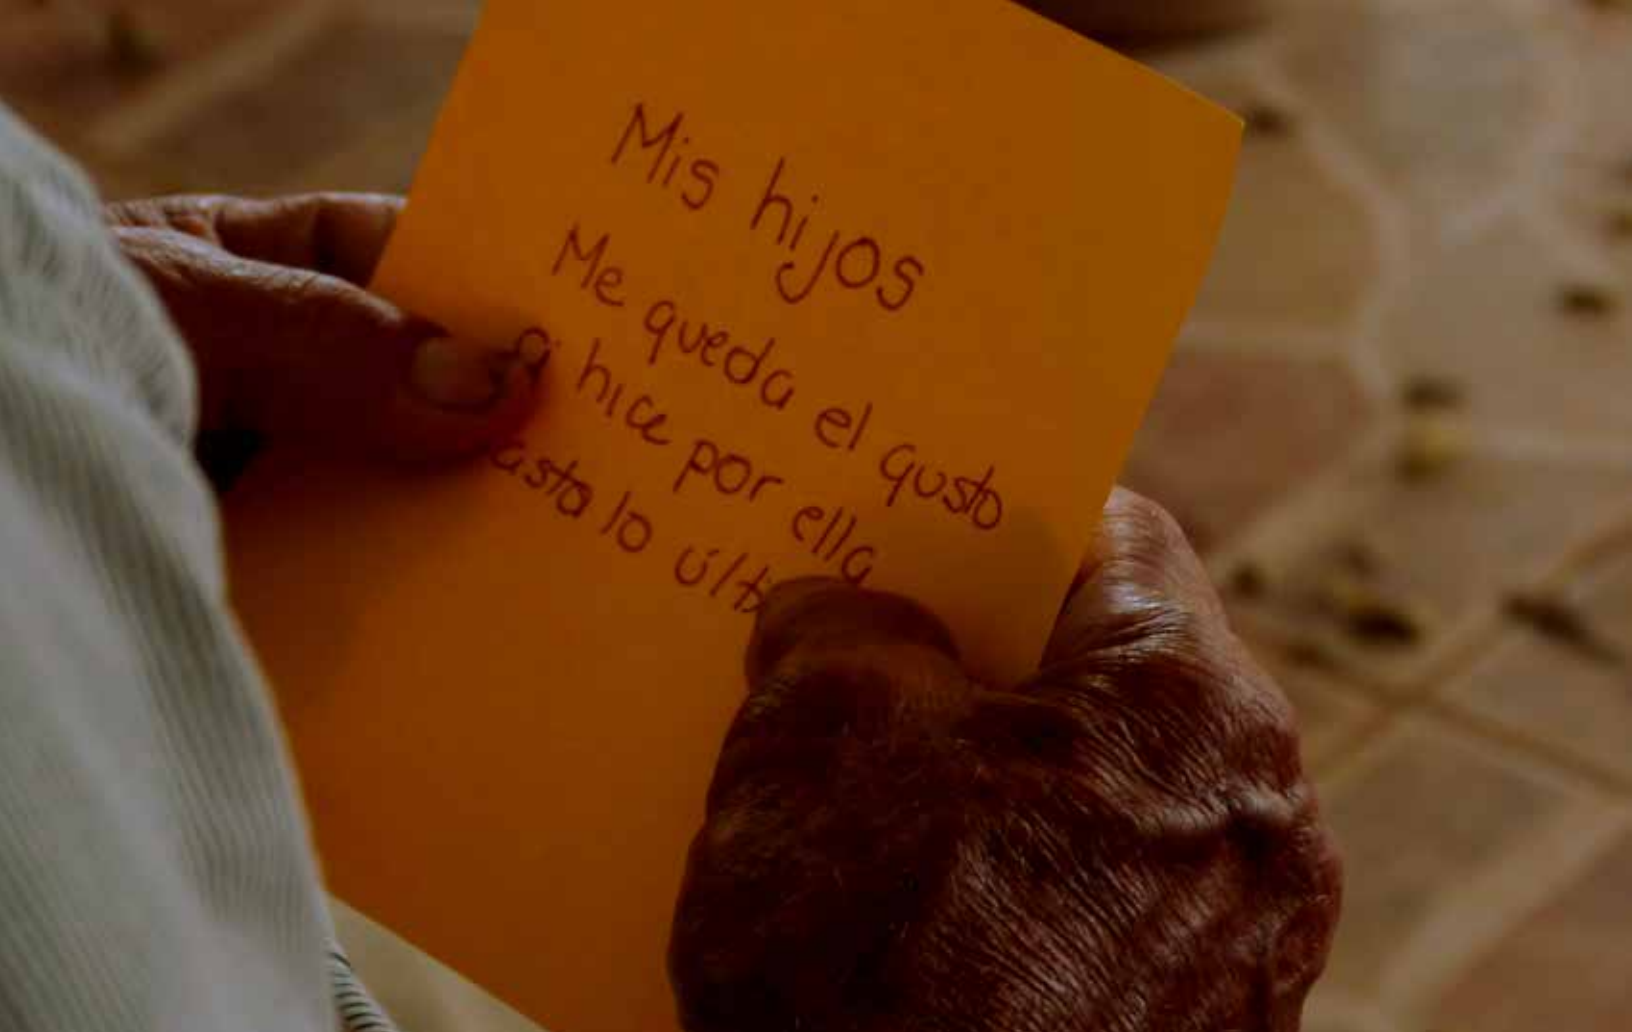 Mis hijos
Me queda el gusto
hice por ella
asta lo últi